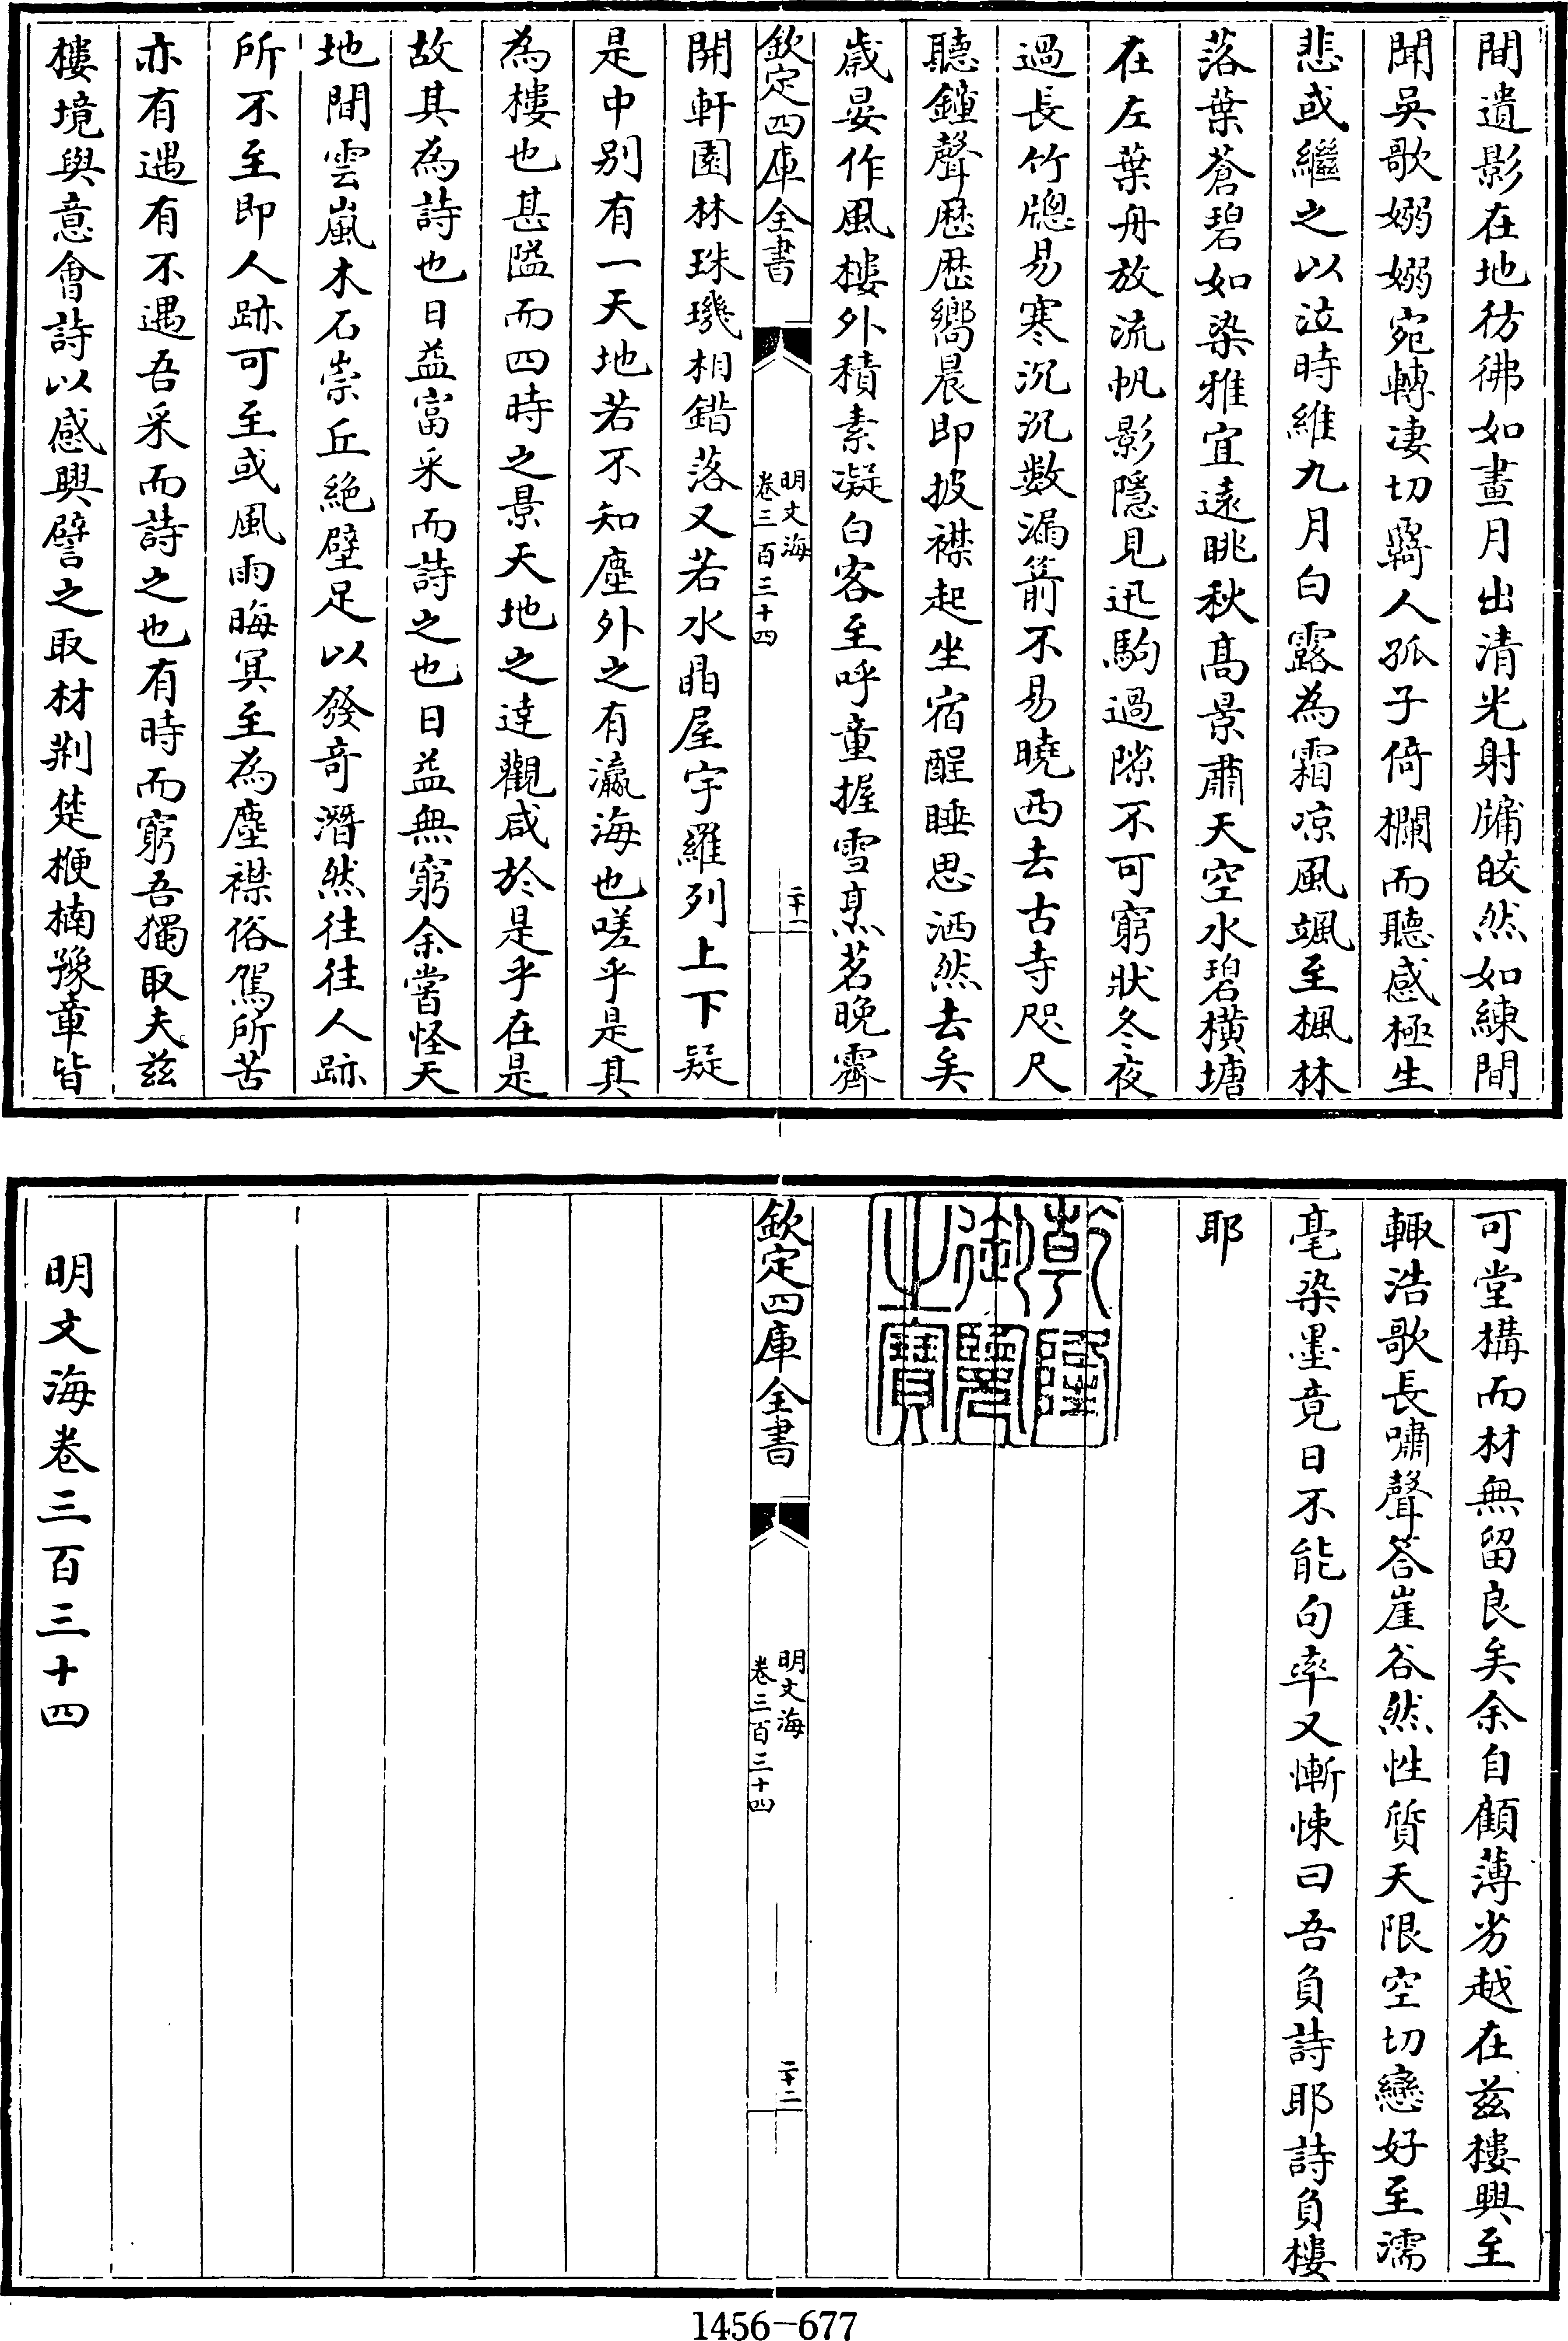 間遺影在地彷彿如畫月出清光射牗皎然如練間
聞吳歌嫋嫋宛轉凄切羇人孤子倚欄而聽感極生
悲或繼之以泣時維九月白露為霜凉風颯至楓林
落葉蒼碧如染雅宜遠眺秋髙景肅天空水碧橫塘
在左葉舟放流帆影隱見迅駒過隙不可窮狀冬夜
過長竹牕易寒沉沉數漏箭不易曉西去古寺咫尺
聽鐘聲歴歴嚮晨即披襟起坐宿酲睡思洒然去矣
歲晏作風樓外積素凝白客至呼童握雪烹茗晚霽
欽定四庫全書
明文海
卷三百三十四
二十一
開軒園林珠璣相錯落又若水晶屋宇羅列上下疑
是中别有一天地若不知塵外之有瀛海也嗟乎是其
為樓也甚隘而四時之景天地之逹觀咸於是乎在是
故其為詩也日益富采而詩之也日益無窮余嘗怪天
地間雲嵐木石崇丘絶壁足以發奇潛然往往人跡
所不至即人跡可至或風雨晦冥至為塵襟俗駕所苦
亦有遇有不遇吾采而詩之也有時而窮吾獨取夫兹
樓境與意會詩以感興譬之取材荆楚楩楠豫章皆
可堂構而材無留良矣余自顧薄劣越在兹樓興至
輙浩歌長嘯聲答崖谷然性質天限空切戀好至濡
毫染墨竟日不能句率又慚悚曰吾負詩耶詩負樓
耶
乾隆御覽之寶
欽定四庫全書
明文海
卷三百三十四
二十二
明文海卷三百三十四
1456-677